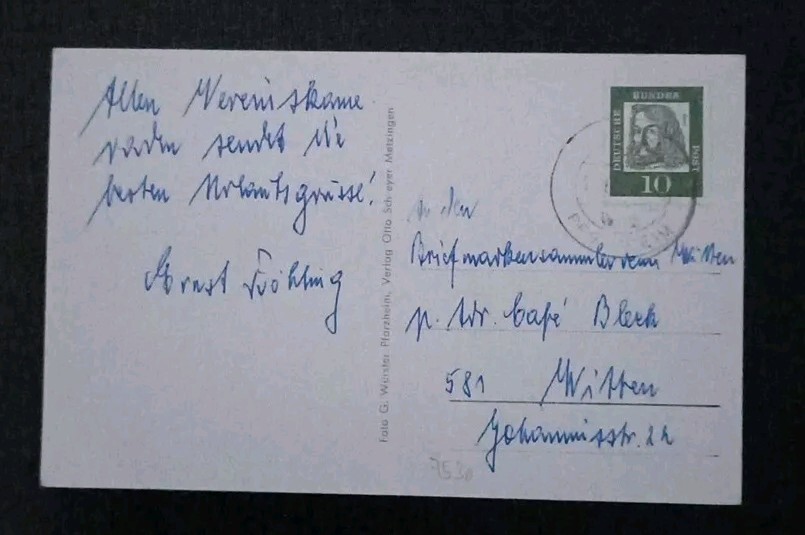 Allen Vereinskame
raden sendet die
besten Urlaubsgrüsse!
Foto G. Werster Pforzheim, Verlag Otto Scheyer Metzingen
DEUTSCHE
BUNDES
POST
10
An den
Briefmarkensammlerverein Witten
p. Adr. Café Bleck
581 Witten
Johannisstr. 22